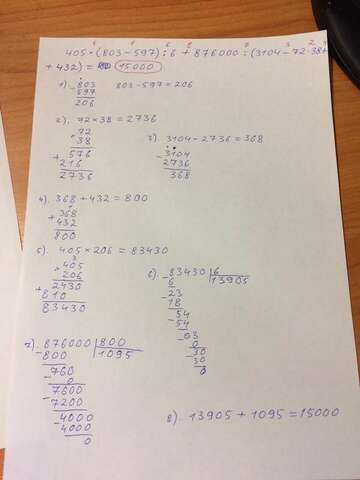 405·(803-597):6+876000:(3104-72·38+
+432)=15000
1).-803 803-597=206
597
206
2). 72×38=2736
×72
38
+576
216
2736
3). 3104-2736=368
-3104
2736
368
4). 368+432=800
+368
432
800
5). 405×206=83430
×405
206
+2430
810
83430
6) -83430|6
6 13905
-23
18
-54
54
-03
0
-30
30
0
7). 876000|800
-800 1095
-760
0
-7600
7200
-4000
4000
0
8). 13905+1095=15000